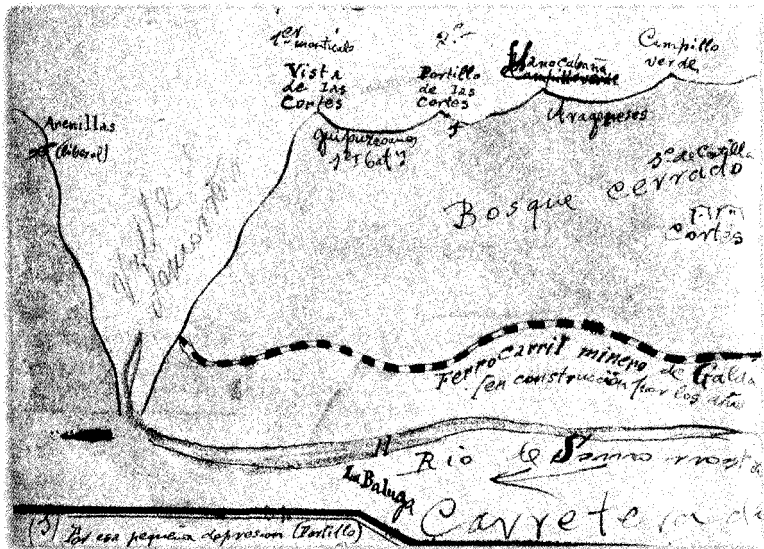 1er montículo
Vista
de las
Cortes
2º
Portillo
de las
Cortes
Llano Cabaña
Campillo
verde
Arenillas
(liberal)
guipuzcoanos
1er Batn
Aragoneses
Valle
Bosque cerrado
3º de Castilla
Cortés
Ferrocarril minero de Galda
(en construcción por los años
Rio de Somorrost
La Baluga
Carretera d
(3) Por esa pequeña depresion (Portillo)